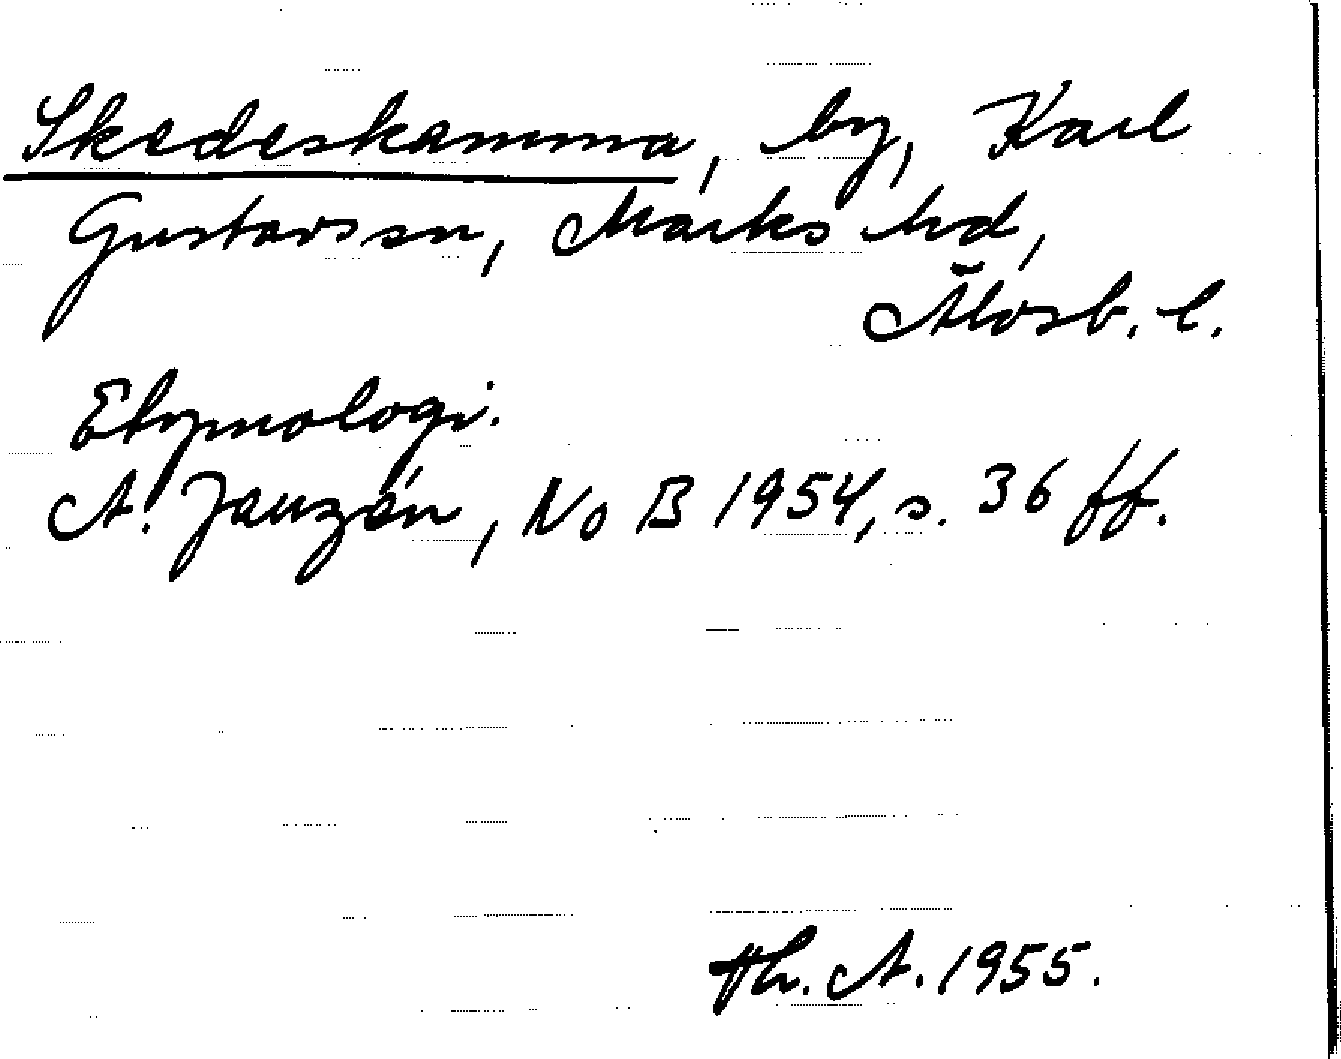 Skedeskamma, by, Karl
Gustavs sn, Marks hd,
Älvsb. l.
Etymologi.
A. Janzén, NoB 1954, s. 36 ff.
Th. A. 1955.